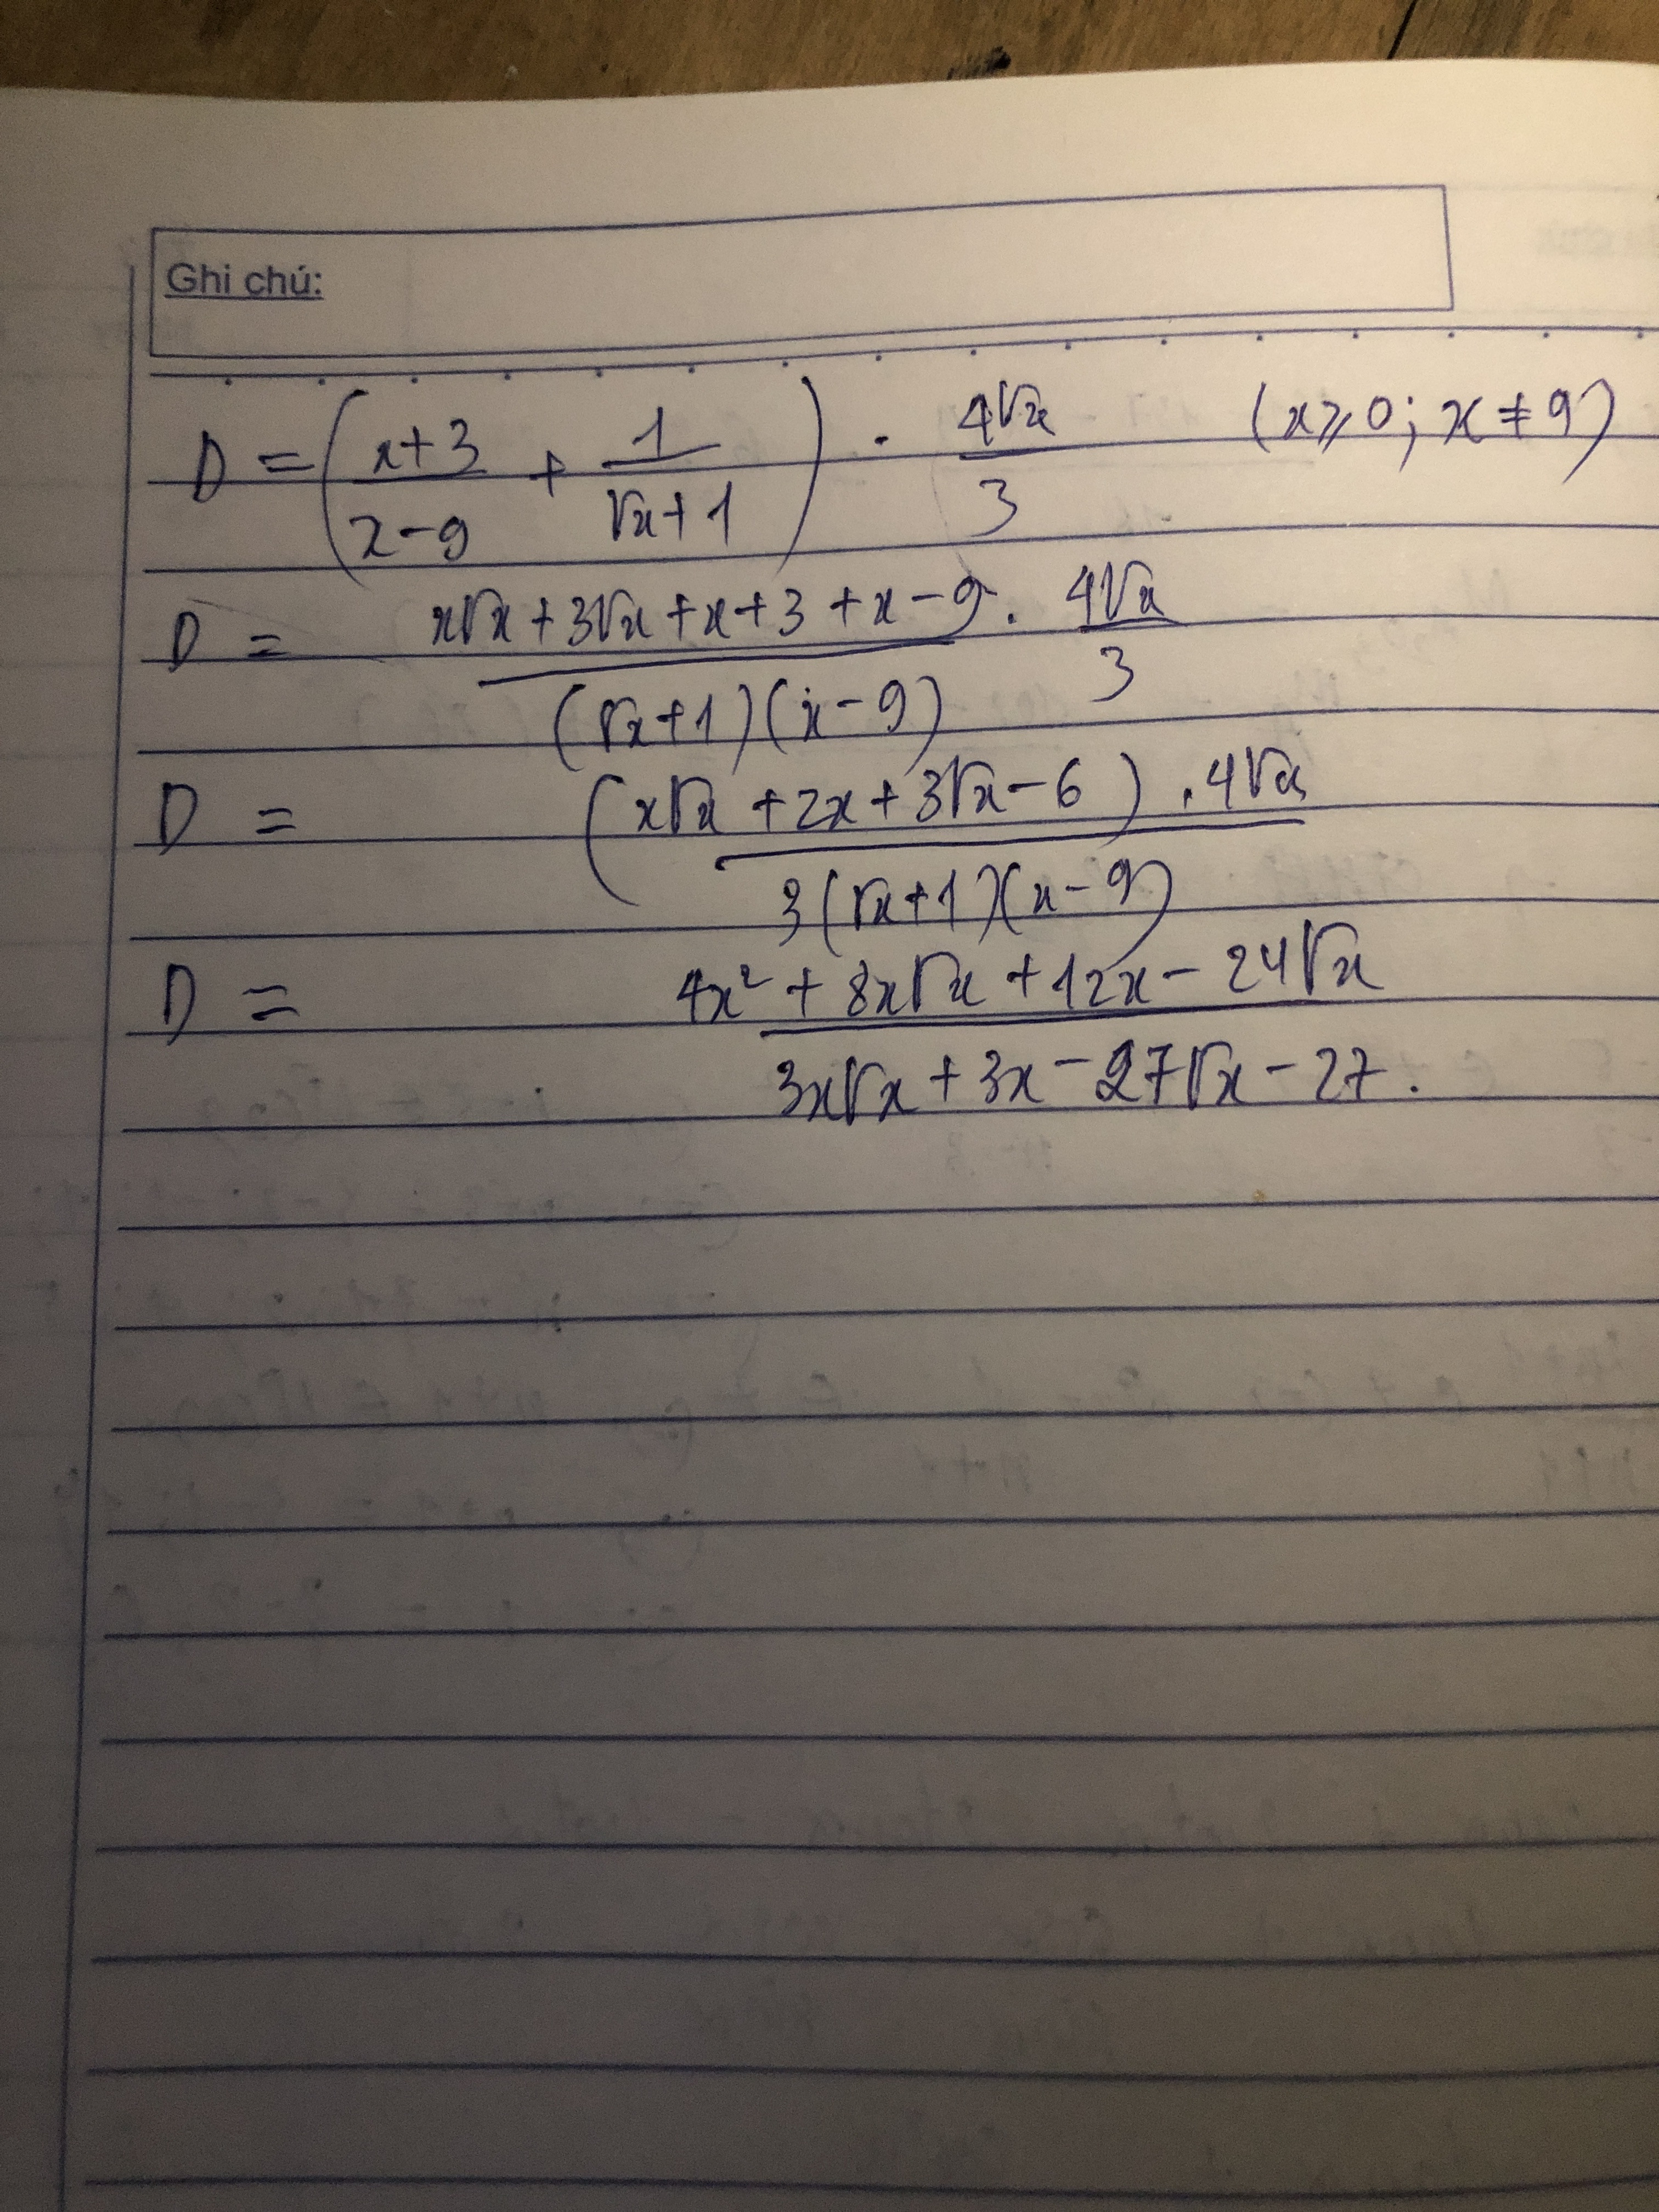 Ghi chú:
D = (x+3/x-9 + 1/√x+1) . 4√x/3 (x≥0; x≠9)
D = x√x + 3√x + x + 3 + x - 9/(√x+1)(x-9) . 4√x/3
D = (x√x + 2x + 3√x - 6) . 4√x/3(√x+1)(x-9)
D = 4x² + 8x√x + 12x - 24√x/3x√x + 3x - 27√x - 27.